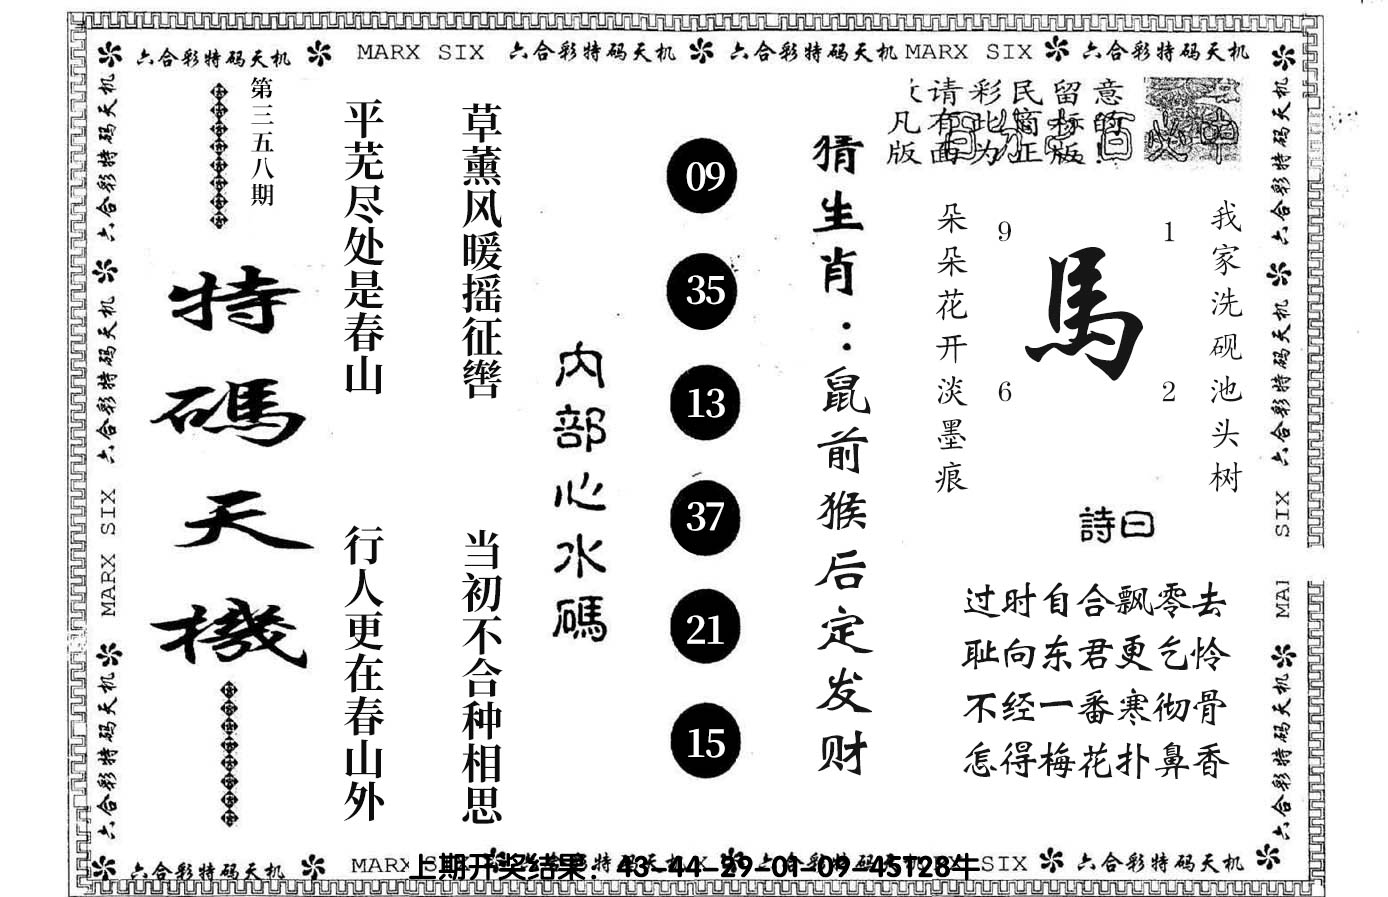 六合彩特码天机 MARX SIX 六合彩特码天机 六合彩特码天机 MARX SIX 六合彩特码天机
第三五八期
特碼天機
平芜尽处是春山
行人更在春山外
草薰风暖摇征辔
当初不合种相思
内部心水碼
09
35
13
37
21
15
猜生肖：鼠前猴后定发财
请彩民留意
凡有此商标的
版面为正版!
我家洗砚池头树
朵朵花开淡墨痕
9 1
馬
6 2
詩曰
过时自合飘零去
耻向东君更乞怜
不经一番寒彻骨
怎得梅花扑鼻香
六合彩特码天机
六合彩特码天机
MARX SIX
六合彩特码天机
六合彩特码天机
六合彩特码天机
SIX
MA
六合彩特码天机
六合彩特码天机 MARX
上期开奖结果：43-44-29-01-09-45T28牛
SIX 六合彩特码天机